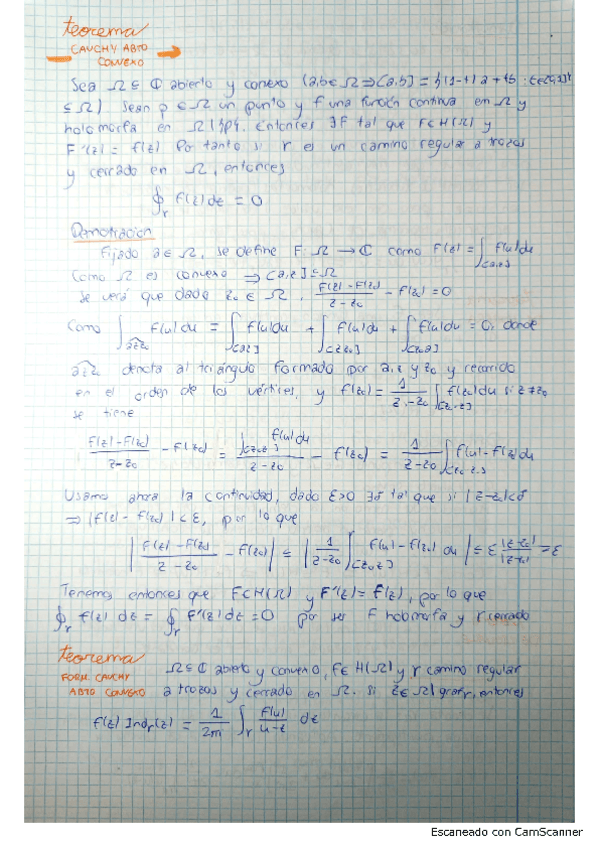 teorema
CAUCHY ABTO
CONVEXO
Sea Ω ⊆ ℂ abierto y conexo (a,b ∈ Ω ⇒ [a,b] = {(1-t)a + tb : t∈[0,1]}
⊆ Ω) Sean p ∈ Ω un punto y f una función continua en Ω y
holomorfa en Ω\{p}. Entonces ∃F tal que F∈H(Ω) y
F'(z) = f(z) Por tanto si r es un camino regular a trozos
y cerrado en Ω, entonces
∮_r f(z)dz = 0
Demostración
Fijado a ∈ Ω, se define F: Ω → ℂ como F(z) = ∫_[a,z] f(u)du
Como Ω es convexo ⇒ [a,z] ⊆ Ω
Se verá que dado z₀ ∈ Ω, (F(z) - F(z₀))/(z - z₀) - f(z₀) = 0
Como ∫_azz₀ f(u)du = ∫_[a,z] f(u)du + ∫_[z,z₀] f(u)du + ∫_[z₀,a] f(u)du = 0, donde
azz₀ denota al triángulo formado por a, z y z₀ y recorrido
en el orden de los vértices, y f(z₀) = 1/(z-z₀) ∫_[z₀,z] f(z₀)du si z≠z₀
se tiene
(F(z)-F(z₀))/(z-z₀) - f(z₀) = (∫_[z₀,z] f(u)du)/(z-z₀) - f(z₀) = 1/(z-z₀) ∫_[z₀,z] f(u)-f(z₀)du
Usamos ahora la continuidad, dado ε>0 ∃δ tal que si |z-z₀|<δ
⇒ |f(z) - f(z₀)| < ε, por lo que
|(F(z)-F(z₀))/(z-z₀) - f(z₀)| ≤ |1/(z-z₀) ∫_[z₀,z] f(u)-f(z₀) du| ≤ ε |z-z₀|/|z-z₀| = ε
Tenemos entonces que F∈H(Ω) y F'(z) = f(z), por lo que
∮_r f(z) dz = ∮_r F'(z)dz = 0 por ser F holomorfa y r cerrado
teorema
FORM. CAUCHY
ABTO CONVEXO
Ω⊆ℂ abierto y convexo, f∈H(Ω) y r camino regular
a trozos y cerrado en Ω. Si z∈Ω\graf r, entonces
f(z) Ind_r(z) = 1/2πi ∫_r f(u)/(u-z) dz
Escaneado con CamScanner